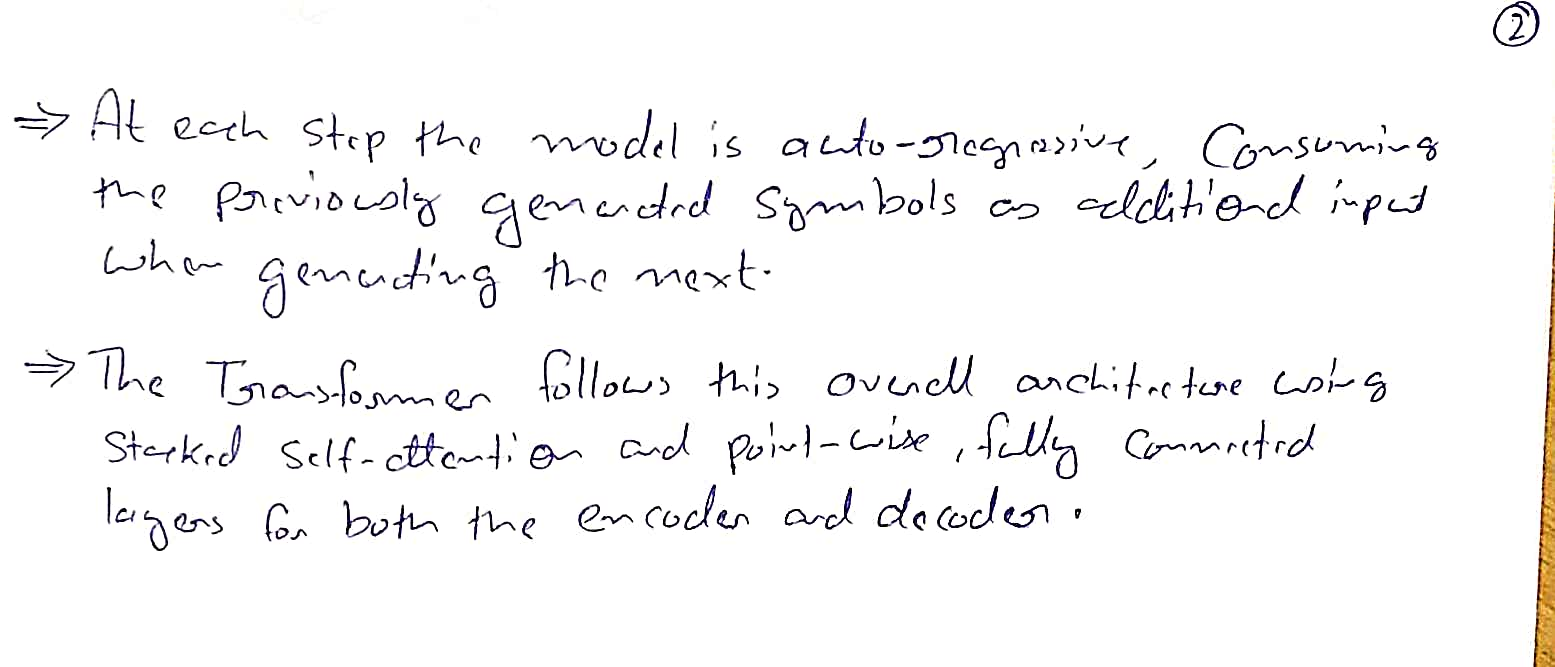 2
⇒ At each step the model is auto-regressive, Consuming
the previously generated symbols as additional input
when generating the next.
⇒ The Transformer follows this overall architecture using
Stacked Self-attention and point-wise, fully connected
layers for both the encoder and decoder.